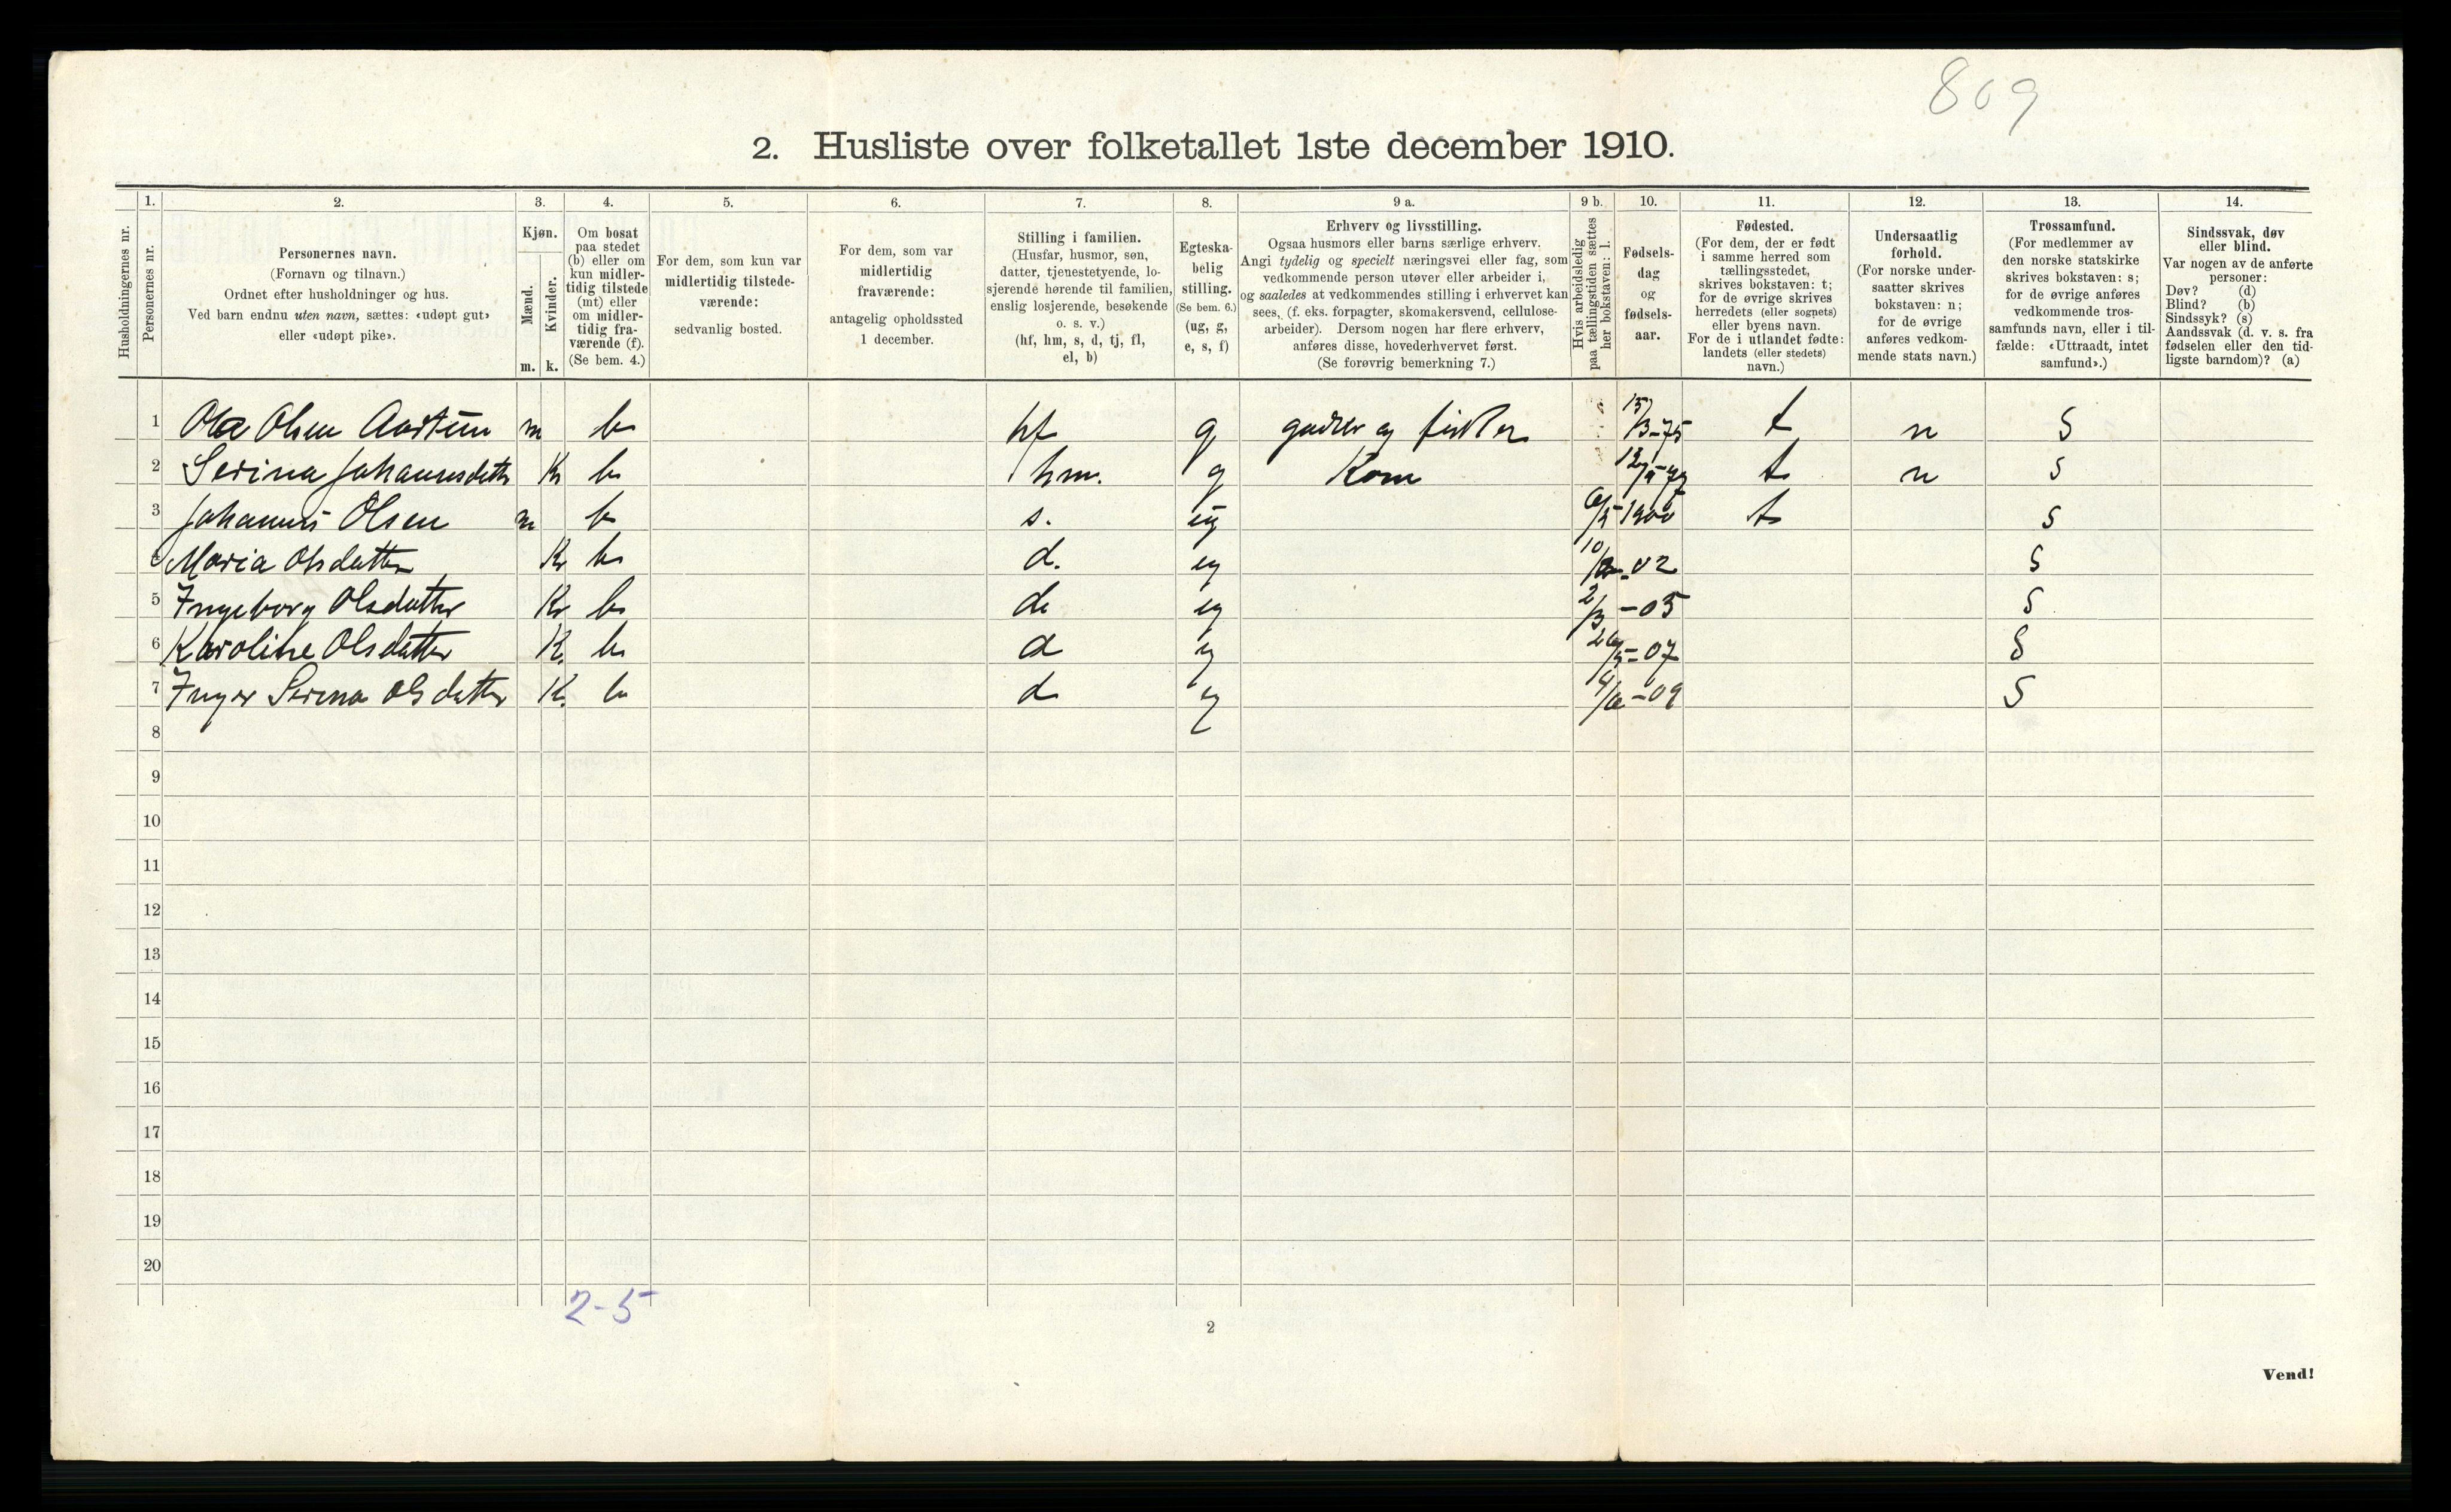 809
2. Husliste over folketallet 1ste december 1910.
Husholdningernes nr.
1. Personernes nr.
2. Personernes navn.
(Fornavn og tilnavn.)
Ordnet efter husholdninger og hus.
Ved barn endnu uten navn, sættes: «udøpt gut»
eller «udøpt pike».
3. Kjøn.
Mænd. Kvinder.
m. k.
4. Om bosat
paa stedet
(b) eller om
kun midler-
tidig tilstede
(mt) eller
om midler-
tidig fra-
værende (f).
(Se bem. 4.)
5. For dem, som kun var
midlertidig tilstede-
værende:
sedvanlig bosted.
6. For dem, som var
midlertidig
fraværende:
antagelig opholdssted
1 december.
7. Stilling i familien.
(Husfar, husmor, søn,
datter, tjenestetyende, lo-
sjerende hørende til familien,
enslig losjerende, besøkende
o. s. v.)
(hf, hm, s, d, tj, fl,
el, b)
8. Egteska-
belig
stilling.
(Se bem. 6.)
(ug, g,
e, s, f)
9 a. Erhverv og livsstilling.
Ogsaa husmors eller barns særlige erhverv.
Angi tydelig og specielt næringsvei eller fag, som
vedkommende person utøver eller arbeider i,
og saaledes at vedkommendes stilling i erhvervet kan
sees, (f. eks. forpagter, skomakersvend, cellulose-
arbeider). Dersom nogen har flere erhverv,
anføres disse, hovederhvervet først.
(Se forøvrig bemerkning 7.)
9 b. Hvis arbeidsledig
paa tællingstiden sættes
her bokstaven: l.
10. Fødsels-
dag
og
fødsels-
aar.
11. Fødested.
(For dem, der er født
i samme herred som
tællingsstedet,
skrives bokstaven: t;
for de øvrige skrives
herredets (eller sognets)
eller byens navn.
For de i utlandet fødte:
landets (eller stedets)
navn.)
12. Undersaatlig
forhold.
(For norske under-
saatter skrives
bokstaven: n;
for de øvrige
anføres vedkom-
mende stats navn.)
13. Trossamfund.
(For medlemmer av
den norske statskirke
skrives bokstaven: s;
for de øvrige anføres
vedkommende tros-
samfunds navn, eller i til-
fælde: «Uttraadt, intet
samfund».)
14. Sindssvak, døv
eller blind.
Var nogen av de anførte
personer:
Døv? (d)
Blind? (b)
Sindssyk? (s)
Aandssvak (d. v. s. fra
fødselen eller den tid-
ligste barndom)? (a)
1 Ola Olsen m b hf g 15/3-75 t n S
2 Serina Johannesdatter K b hm. g Kone t n S
3 Johannes Olsen m b s. ug 1900 t S
4 Maria Olsdatter K b d. ug 02 S
5 Ingeborg Olsdatter K b d ug 2/3-05 S
6 Karoline Olsdatter K. b d ug 26/5-07 S
7 Inger Serina Olsdatter K. b d ug -09 S
8
9
10
11
12
13
14
15
16
17
18
19
20
2-5
2
Vend!